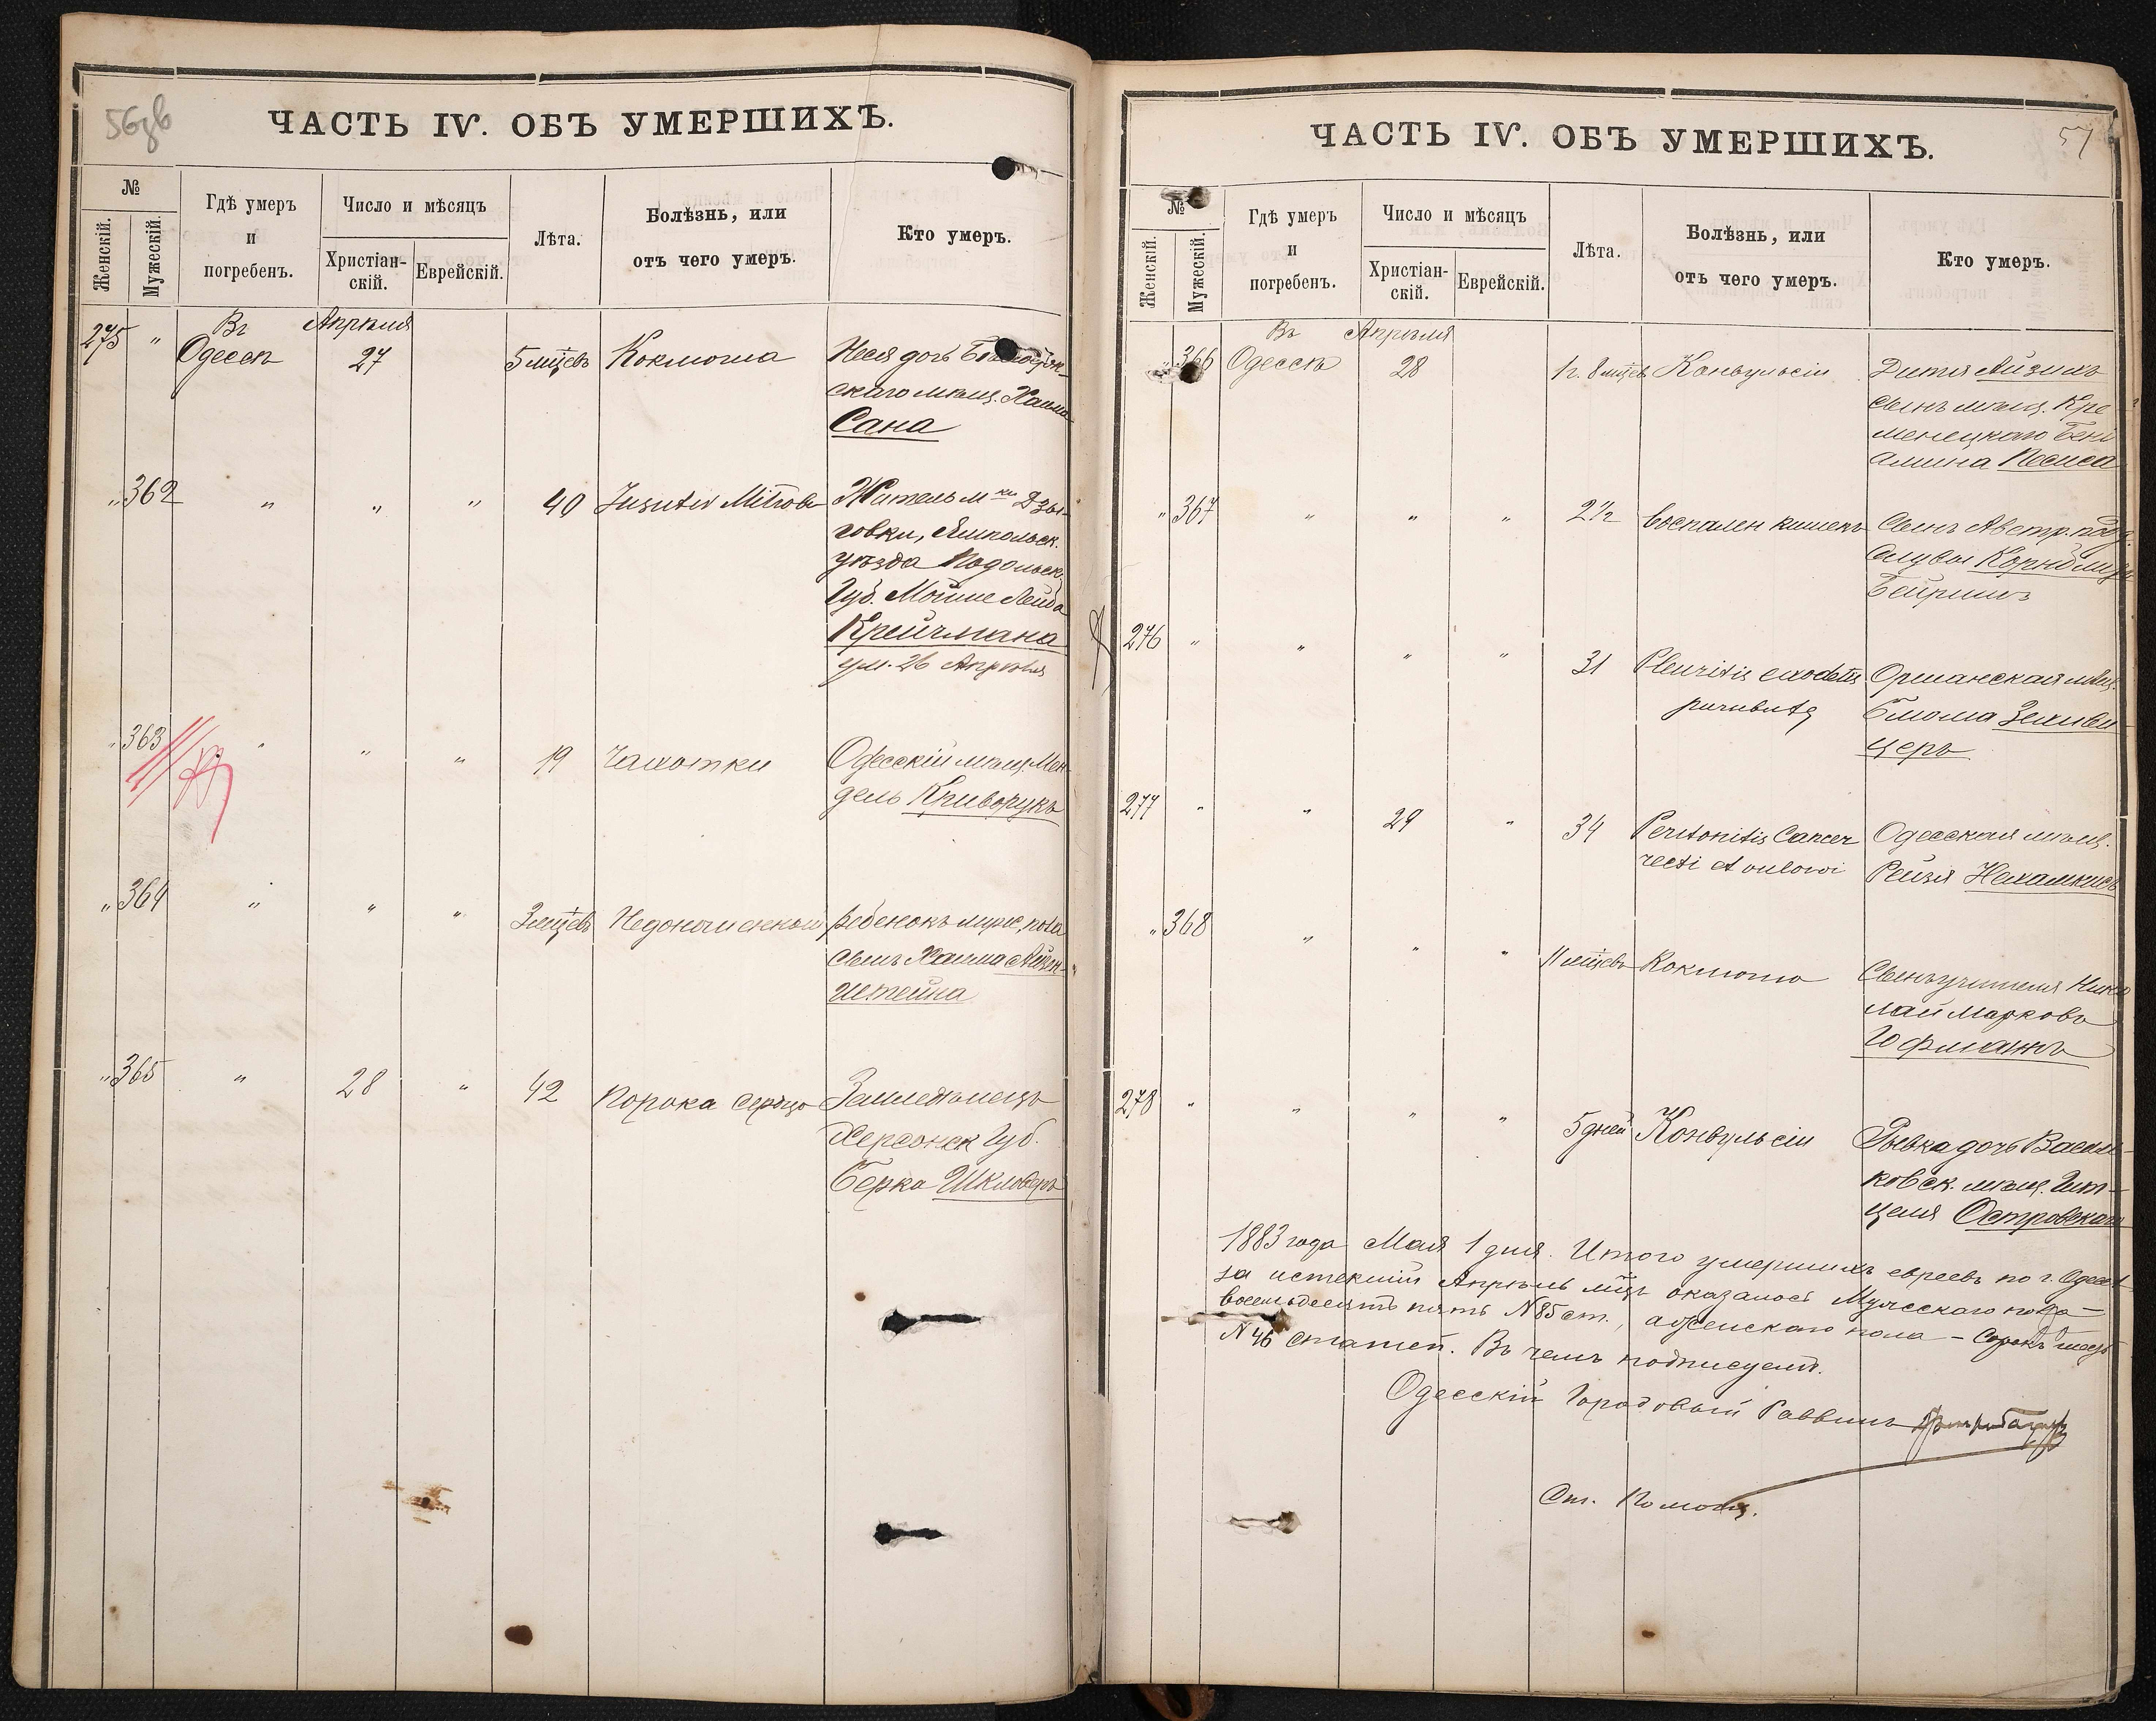 56зв
ЧАСТЬ IV. ОБЪ УМЕРШИХЪ.
№
Женскій.
Мужескій.
Гдѣ умеръ
и
погребенъ.
Число и мѣсяцъ
Христіан-
скій.
Еврейскій.
Лѣта.
Болѣзнь, или
отъ чего умеръ.
Кто умеръ.
275 " Въ Одессѣ Апрѣля 27 5 мѣцевъ Коклюша Неся дочь
скаго мѣщ. Хаима
Сана
" 362 " " " 40 Житель м-ка Дзы-
говки, Ямпольск.
уѣзда Подольск.
Губ. Мошке Лейба
Крейчмана
ум. 26 Апрѣля
" 363 " " " 19 Чахотки Одесскій мѣщ. Мен-
дель Криворукъ
" 364 " " " 3 мѣцевъ Ребенокъ муж. пола
сынъ Хаима Айзен-
штейна
" 365 " 28 " 42 Порока сердца Земледѣлецъ
Херсонск Губ.
Берка Шкловеръ
57
ЧАСТЬ IV. ОБЪ УМЕРШИХЪ.
№
Женскій.
Мужескій.
Гдѣ умеръ
и
погребенъ.
Число и мѣсяцъ
Христіан-
скій.
Еврейскій.
Лѣта.
Болѣзнь, или
отъ чего умеръ.
Кто умеръ.
" 366 Въ Одессѣ Апрѣля 28 1 г. 8 мѣцев Конвульсіи Дитя Айзикъ
сынъ мѣщ. Кре
менецкаго Бені
амина Песиса
" 367 " " " 2½ Воспален кишекъ Сынъ Австр. подд.
Бейришъ
276 " " " " 31 Pleuritis Оршанская мѣщ.
Блюма
церъ
277 " " 29 " 34 Peritonitis Cancer Одесская мѣщ.
recti et Рейзя Нехамкисъ
" 368 " " " 11 мѣцевъ Коклюша Сынъ учителя Нико
лай Марковъ
Гофманъ
278 " " " " 5 дней Конвульсіи Рывка дочь Василь-
ковск. мѣщ. Ши-
целя Островскаго
1883 года Мая 1 дня. Итого умершихъ евреевъ по г. Одессѣ
за истекшій Апрѣль мѣцъ оказалось Мужескаго пола –
восемьдесятъ пять № 85 ст., а женскаго пола – Сорокъ шесть
№ 46 статей. Въ чемъ подписуемъ.
Одесскій Городовый Раввинъ
Ст. Помощ.